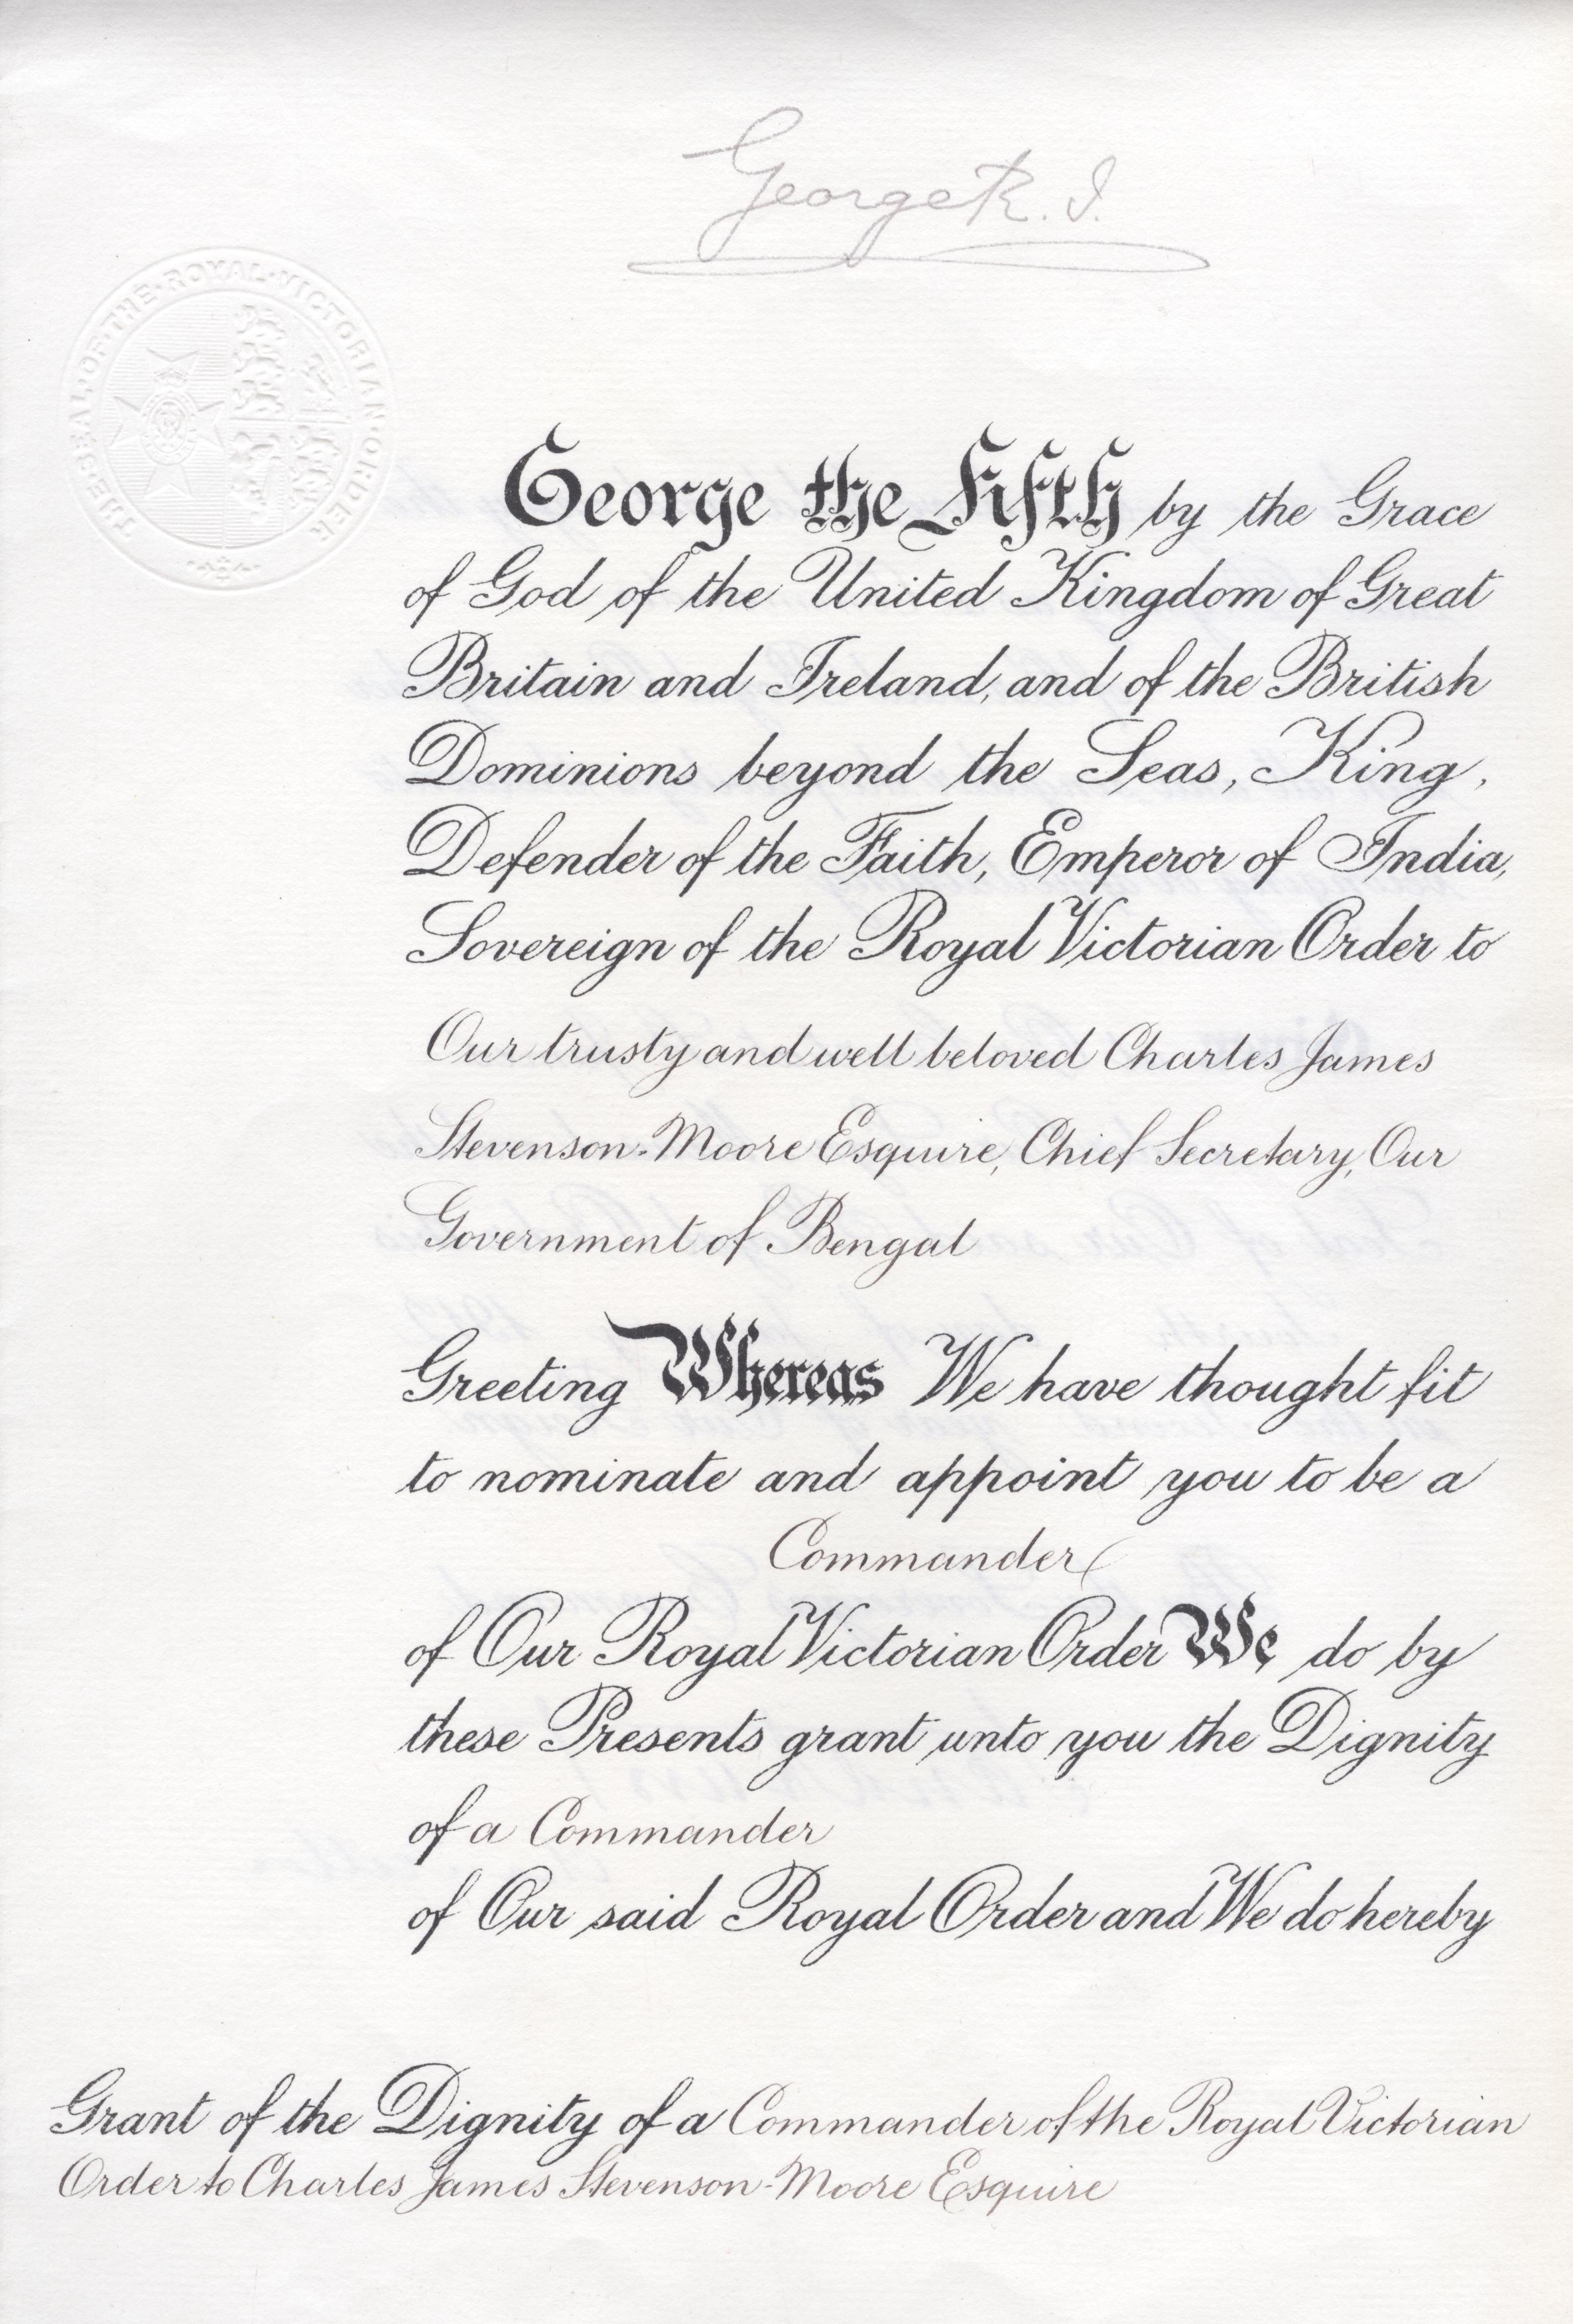 George R. I.
THE·SEAL·OF·THE·ROYAL·VICTORIAN·ORDER
George the Fifth by the Grace
of God of the United Kingdom of Great
Britain and Ireland, and of the British
Dominions beyond the Seas, King,
Defender of the Faith, Emperor of India,
Sovereign of the Royal Victorian Order to
Our trusty and well beloved Charles James
Stevenson-Moore Esquire, Chief Secretary, Our
Government of Bengal
Greeting Whereas We have thought fit
to nominate and appoint you to be a
Commander
of Our Royal Victorian Order We do by
these Presents grant unto you the Dignity
of a Commander
of Our said Royal Order and We do hereby
Grant of the Dignity of a Commander of the Royal Victorian
Order to Charles James Stevenson-Moore Esquire